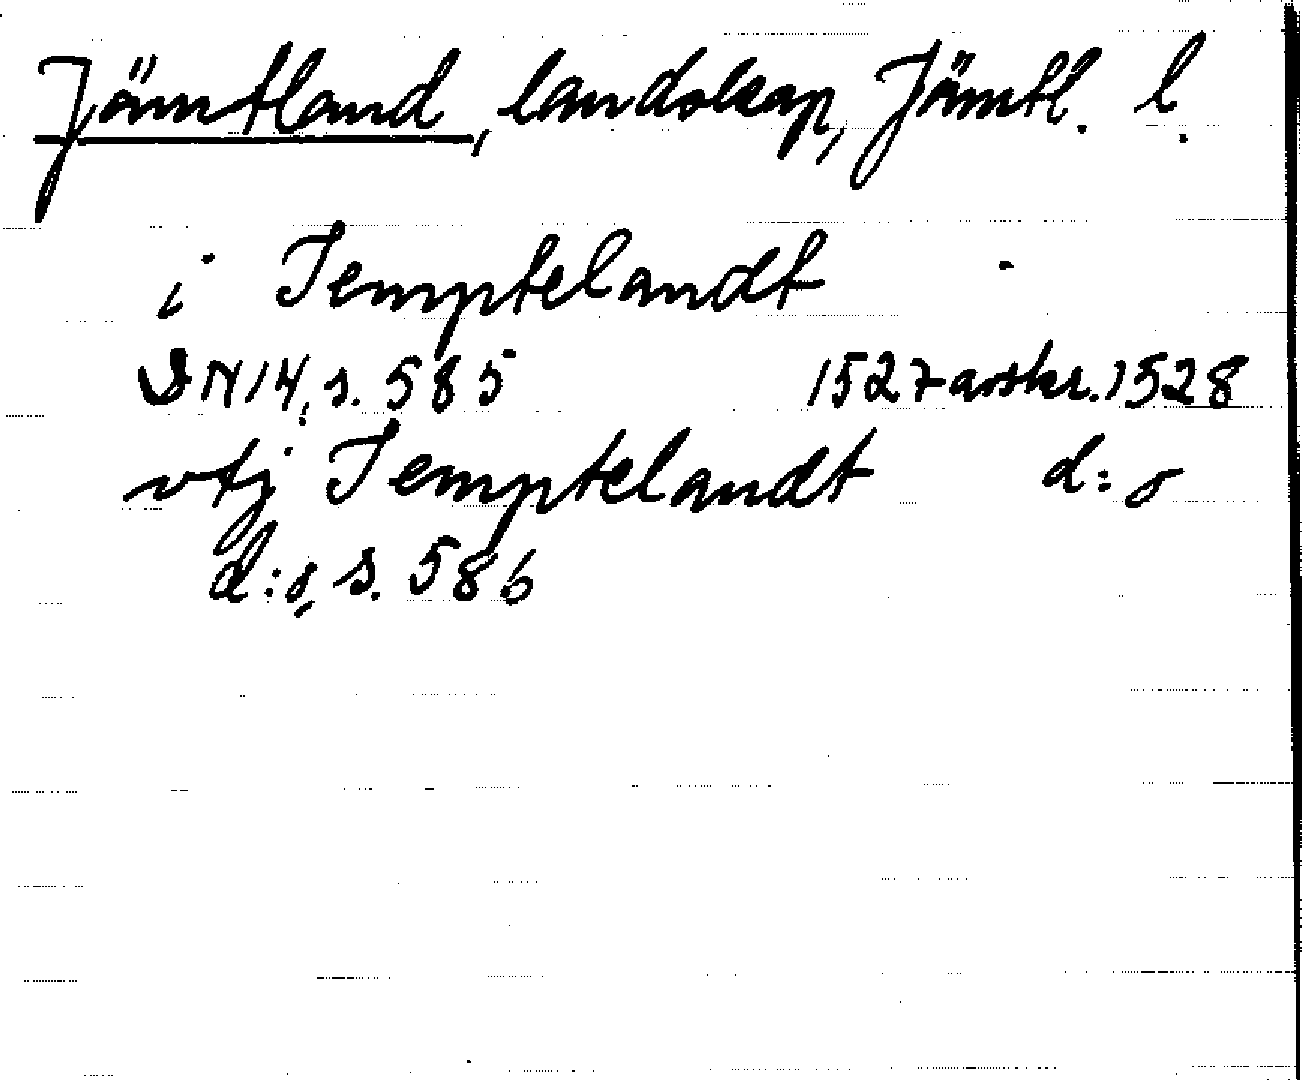 Jämtland, landskap, Jämtl. l.
i Jemptelandt
DN 14, s. 585 1527 avskr. 1528
vtj Jemptelandt d:o
d:o, s. 586